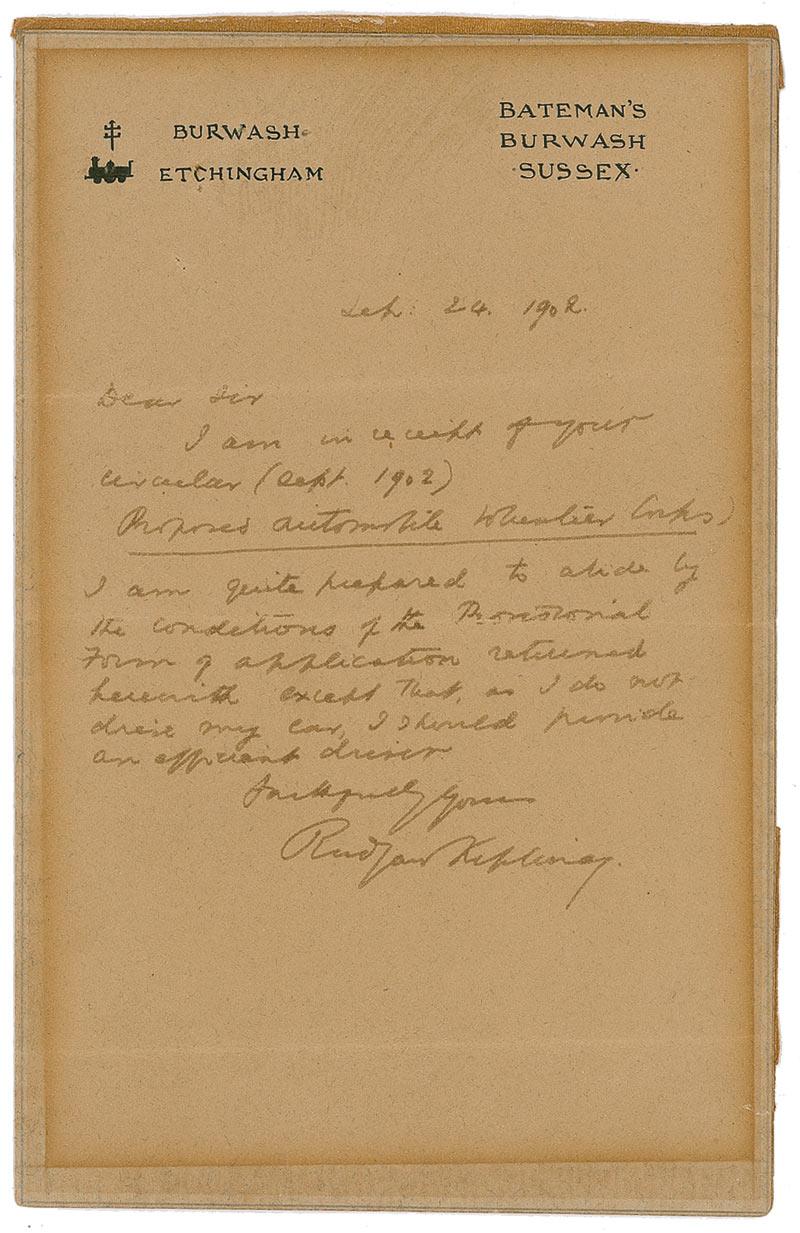 BURWASH
ETCHINGHAM
BATEMAN'S
BURWASH
·SUSSEX·
Sep: 24. 1902.
Dear Sir
I am in receipt of your
circular (Sept. 1902)
Proposed Automobile Volunteer Corps)
I am quite prepared to abide by
the conditions of the Provisional
Form of application returned
herewith except that, as I do not
drive my car, I should provide
an efficient driver
Faithfully yours
Rudyard Kipling.